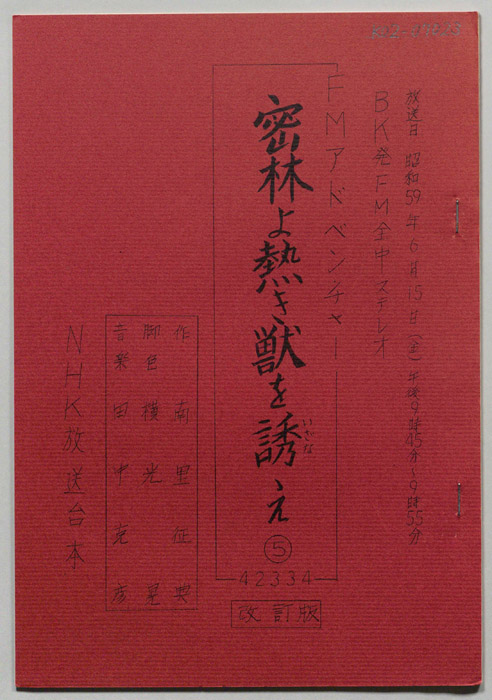 放送日 昭和59年6月15日(金)午後9時45分~9時55分
BK発FM全中ステレオ
FMアドベンチャー
密林よ熱き獣を誘え
いざな
⑤
42334
改訂版
作 南里征典
脚色 横光晃
音楽 田中
NHK放送台本